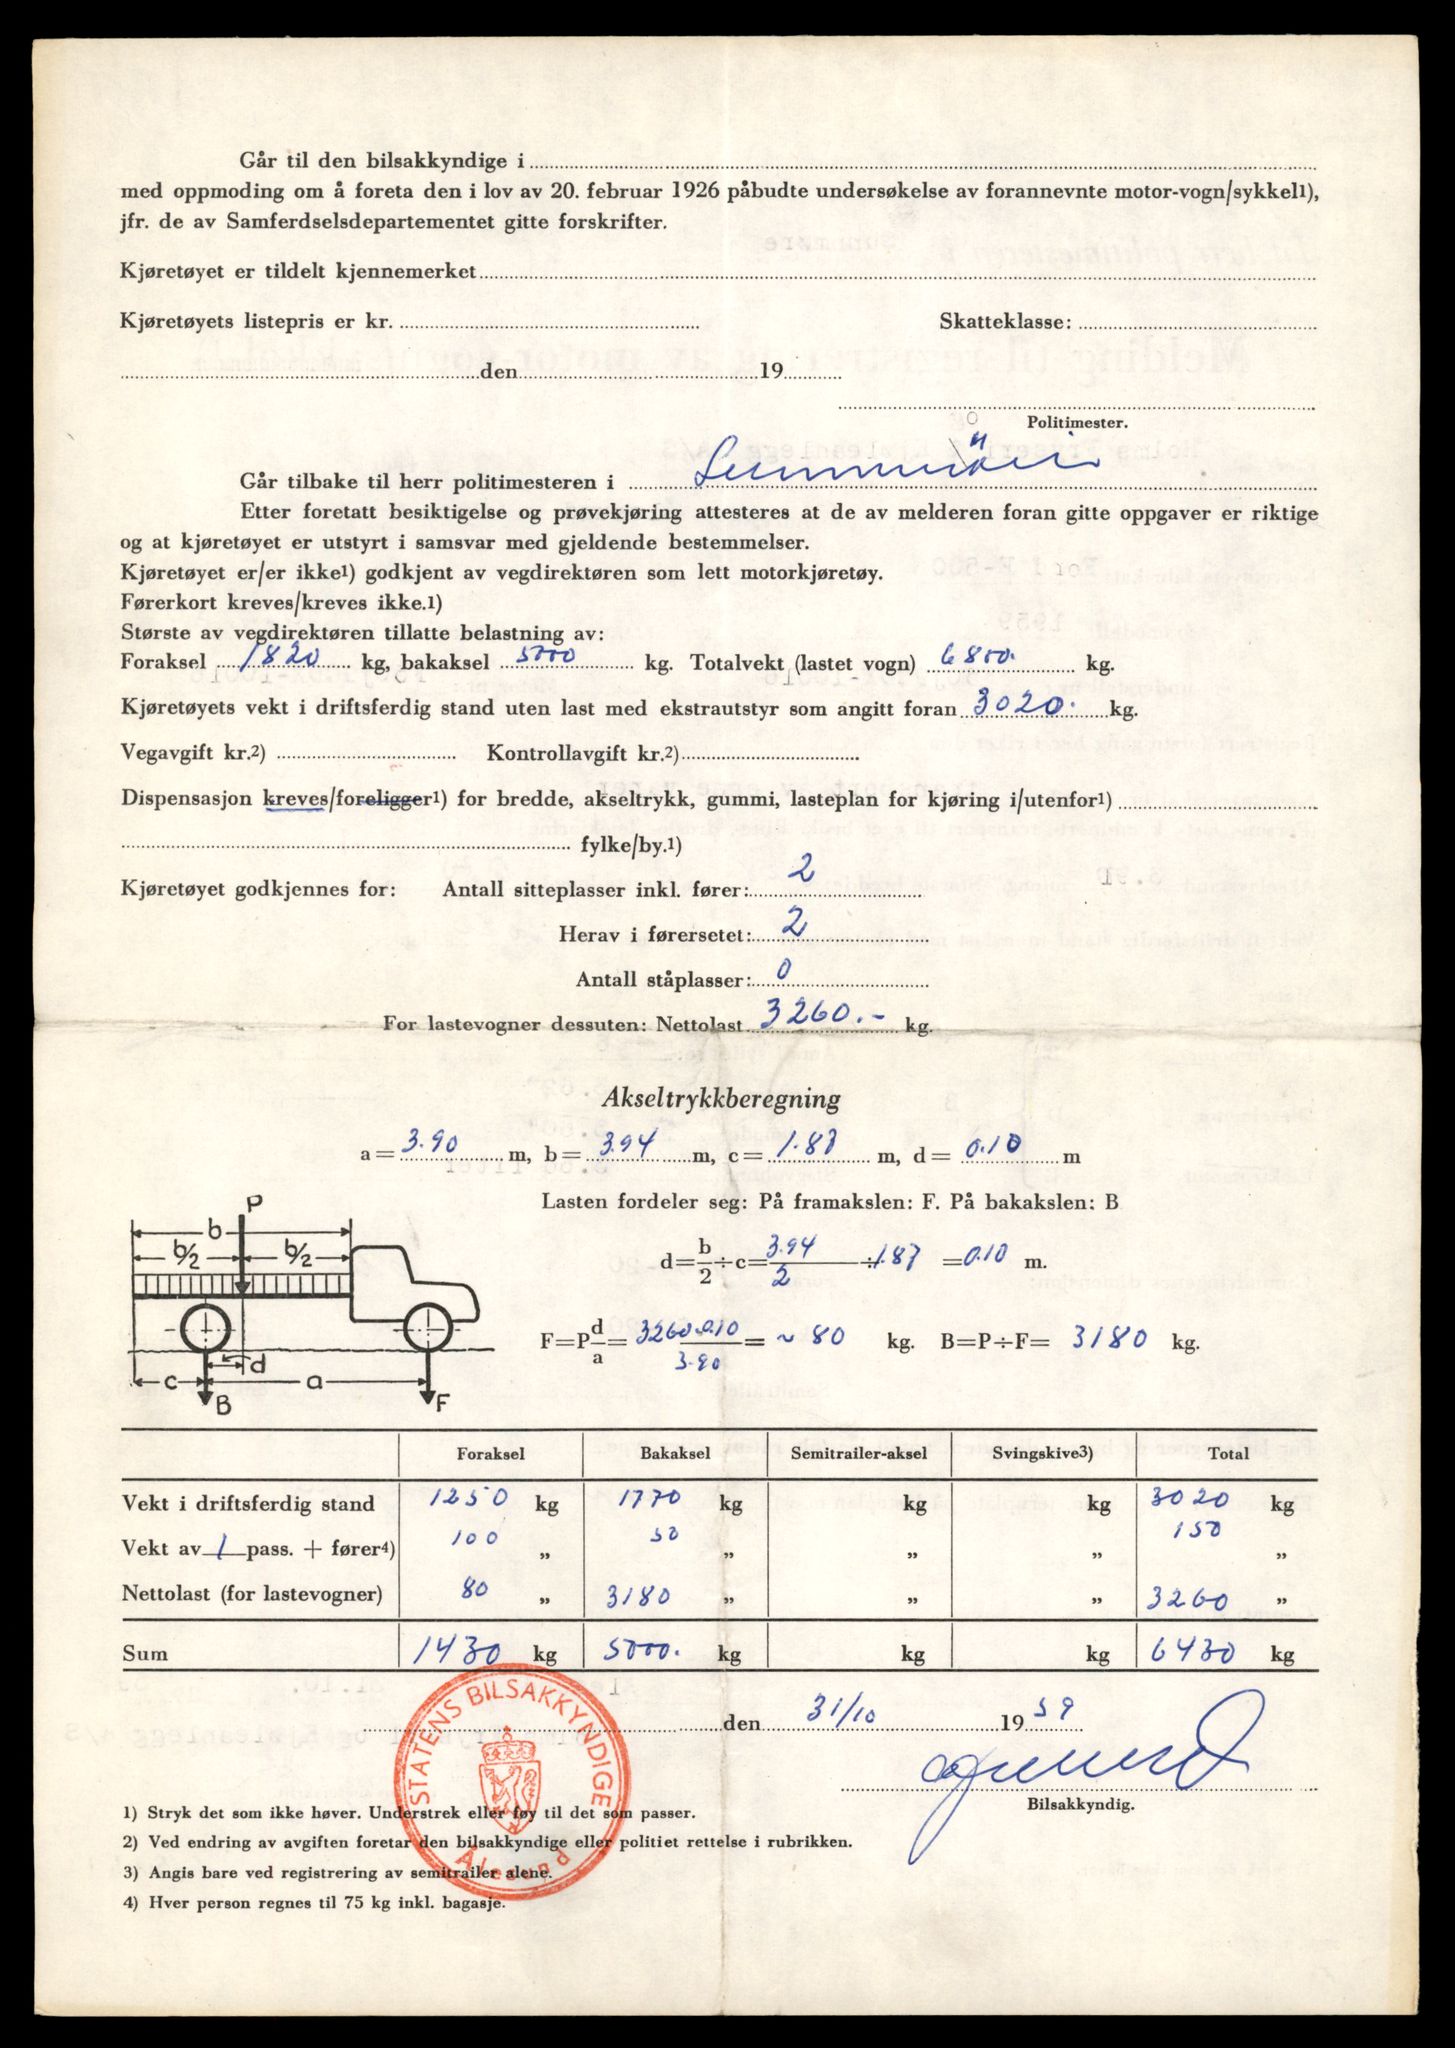 Går til den bilsakkyndige i
med oppmoding om å foreta den i lov av 20. februar 1926 påbudte undersøkelse av forannevnte motor-vogn/sykkel1),
jfr. de av Samferdselsdepartementet gitte forskrifter.
Kjøretøyet er tildelt kjennemerket
Kjøretøyets listepris er kr. Skatteklasse:
den 19
Politimester.
Går tilbake til herr politimesteren i
Etter foretatt besiktigelse og prøvekjøring attesteres at de av melderen foran gitte oppgaver er riktige
og at kjøretøyet er utstyrt i samsvar med gjeldende bestemmelser.
Kjøretøyet er/er ikke1) godkjent av vegdirektøren som lett motorkjøretøy.
Førerkort kreves/kreves ikke.1)
Største av vegdirektøren tillatte belastning av:
Foraksel 1820 kg, bakaksel 5000 kg. Totalvekt (lastet vogn) 6800. kg.
Kjøretøyets vekt i driftsferdig stand uten last med ekstrautstyr som angitt foran 3020. kg.
Vegavgift kr.2) Kontrollavgift kr.2)
Dispensasjon kreves/foreligger1) for bredde, akseltrykk, gummi, lasteplan for kjøring i/utenfor1)
fylke/by.1)
Kjøretøyet godkjennes for: Antall sitteplasser inkl. fører: 2
Herav i førersetet: 2
Antall ståplasser: 0
For lastevogner dessuten: Nettolast 3260.- kg.
Akseltrykkberegning
a = 3.90 m, b = 3.94 m, c = 1.87 m, d = 0.10 m
Lasten fordeler seg: På framakslen: F. På bakakslen: B
d = b/2 ÷ c = 3.94/2 ÷ 1.87 = 0.10 m.
F = P d/a = 3260.0.10/3.90 = ~ 80 kg. B = P ÷ F = 3180 kg.
P
b
b/2 b/2
d
c a
B F
Foraksel Bakaksel Semitrailer-aksel Svingskive3) Total
Vekt i driftsferdig stand 1250 kg 1770 kg kg kg 3020 kg
Vekt av 1 pass. + fører4) 100 „ 50 „ „ „ 150 „
Nettolast (for lastevogner) 80 „ 3180 „ „ „ 3260 „
Sum 1430 kg 5000. kg kg kg 6430 kg
den 31/10 1959
Bilsakkyndig.
STATENS BILSAKKYNDIGE
Ålesund
1) Stryk det som ikke høver. Understrek eller føy til det som passer.
2) Ved endring av avgiften foretar den bilsakkyndige eller politiet rettelse i rubrikken.
3) Angis bare ved registrering av semitrailer alene.
4) Hver person regnes til 75 kg inkl. bagasje.